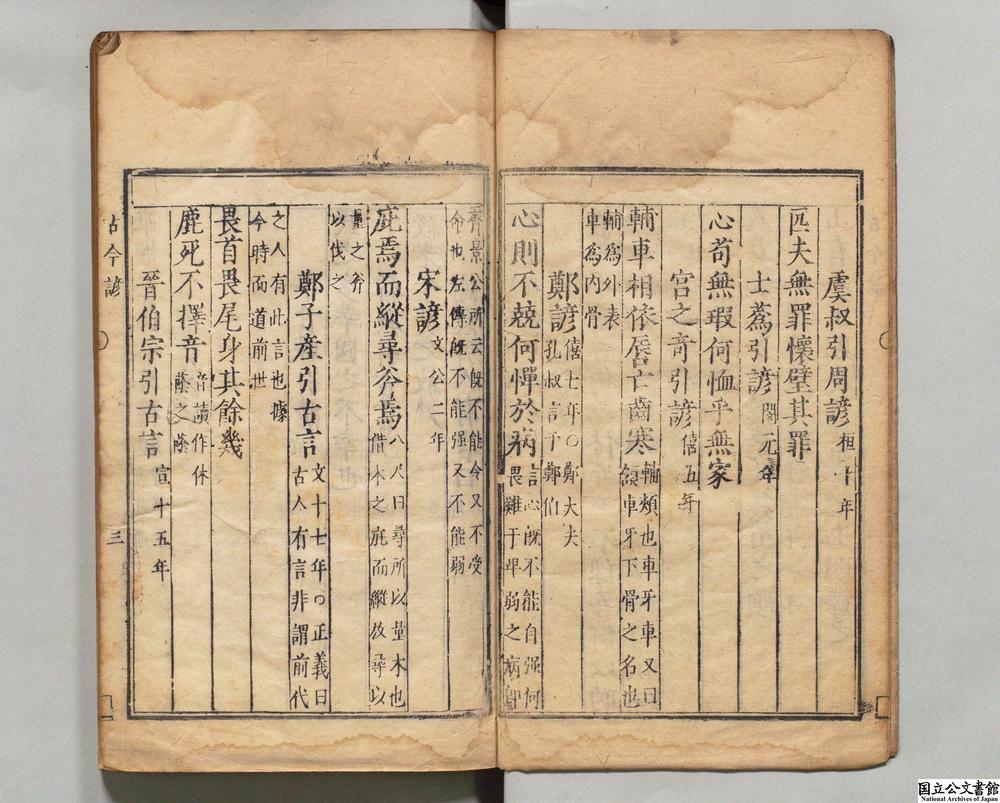 虞叔引周諺桓十年
匹夫無罪懷璧其罪
士蔿引諺閔元年
心苟無瑕何恤乎無家
宮之奇引諺僖五年
輔車相依唇亡齒寒輔頰也車牙車又曰
頷車牙下骨之名也
輔爲外表
車爲内骨
鄭諺僖七年○鄭大夫
孔叔言于鄭伯
心則不兢何憚於病言心旣不能自强何
畏難于卑弱之病卽
齊景公所云旣不能令又不受
命也左傳旣不能强又不能弱
宋諺文公二年
庇焉而縱尋斧焉八尺曰尋所以量木也
借木之庇而縱放尋以
量之斧
以伐之
鄭子產引古言文十七年○正義曰
古人有言非謂前代
之人有此言也據
今時而道前世
畏首畏尾身其餘幾
鹿死不擇音音讀作休
蔭之蔭
晉伯宗引古言宣十五年
古今諺
三
国立公文書館
National Archives of Japan